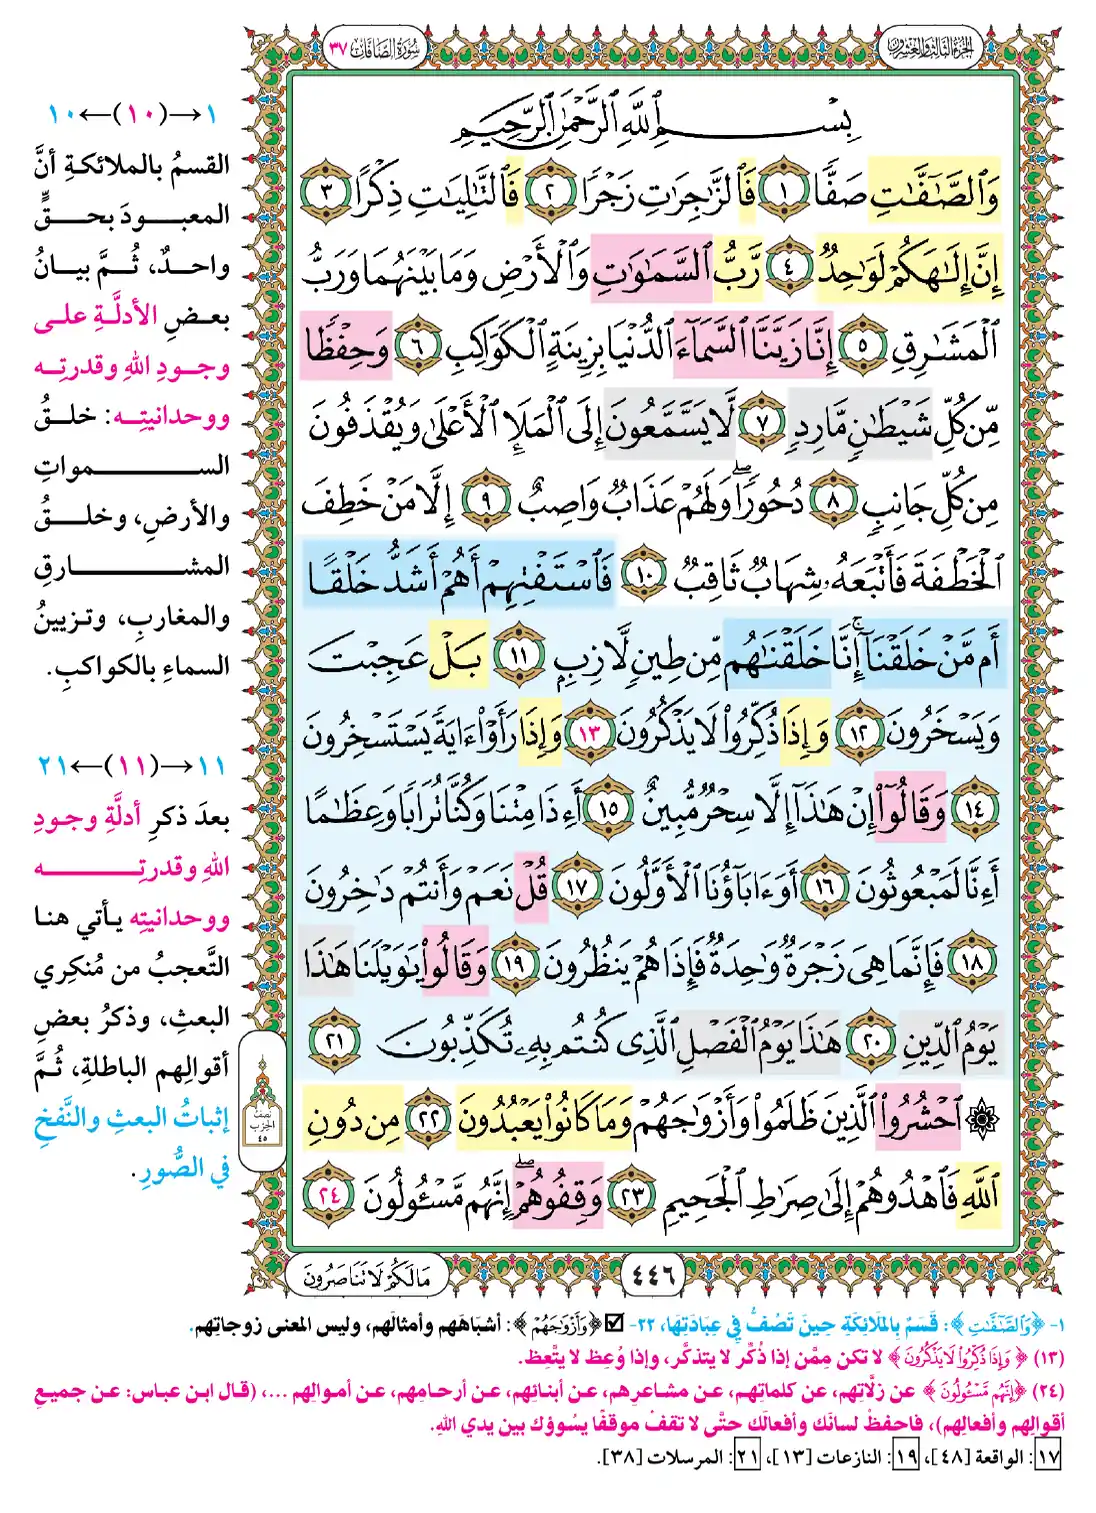 الجزء الثالث والعشرون
سورة الصافات ٣٧
بِسْمِ ٱللَّهِ ٱلرَّحْمَٰنِ ٱلرَّحِيمِ
وَٱلصَّـٰٓفَّـٰتِ صَفًّا ١ فَٱلزَّٰجِرَٰتِ زَجْرًا ٢ فَٱلتَّـٰلِيَـٰتِ ذِكْرًا ٣
إِنَّ إِلَـٰهَكُمْ لَوَٰحِدٌ ٤ رَّبُّ ٱلسَّمَـٰوَٰتِ وَٱلْأَرْضِ وَمَا بَيْنَهُمَا وَرَبُّ
ٱلْمَشَـٰرِقِ ٥ إِنَّا زَيَّنَّا ٱلسَّمَآءَ ٱلدُّنْيَا بِزِينَةٍ ٱلْكَوَاكِبِ ٦ وَحِفْظًا
مِّن كُلِّ شَيْطَـٰنٍ مَّارِدٍ ٧ لَّا يَسَّمَّعُونَ إِلَى ٱلْمَلَإِ ٱلْأَعْلَىٰ وَيُقْذَفُونَ
مِن كُلِّ جَانِبٍ ٨ دُحُورًا ۖ وَلَهُمْ عَذَابٌ وَاصِبٌ ٩ إِلَّا مَنْ خَطِفَ
ٱلْخَطْفَةَ فَأَتْبَعَهُۥ شِهَابٌ ثَاقِبٌ ١٠ فَٱسْتَفْتِهِمْ أَهُمْ أَشَدُّ خَلْقًا
أَم مَّنْ خَلَقْنَآ ۚ إِنَّا خَلَقْنَـٰهُم مِّن طِينٍ لَّازِبٍۭ ١١ بَلْ عَجِبْتَ
وَيَسْخَرُونَ ١٢ وَإِذَا ذُكِّرُوا۟ لَا يَذْكُرُونَ ١٣ وَإِذَا رَأَوْا۟ ءَايَةً يَسْتَسْخِرُونَ
١٤ وَقَالُوٓا۟ إِنْ هَـٰذَآ إِلَّا سِحْرٌ مُّبِينٌ ١٥ أَءِذَا مِتْنَا وَكُنَّا تُرَابًا وَعِظَـٰمًا
أَءِنَّا لَمَبْعُوثُونَ ١٦ أَوَءَابَآؤُنَا ٱلْأَوَّلُونَ ١٧ قُلْ نَعَمْ وَأَنتُمْ دَٰخِرُونَ
١٨ فَإِنَّمَا هِىَ زَجْرَةٌ وَٰحِدَةٌ فَإِذَا هُمْ يَنظُرُونَ ١٩ وَقَالُوا۟ يَـٰوَيْلَنَا هَـٰذَا
يَوْمُ ٱلدِّينِ ٢٠ هَـٰذَا يَوْمُ ٱلْفَصْلِ ٱلَّذِى كُنتُم بِهِۦ تُكَذِّبُونَ ٢١
۞ ٱحْشُرُوا۟ ٱلَّذِينَ ظَلَمُوا۟ وَأَزْوَٰجَهُمْ وَمَا كَانُوا۟ يَعْبُدُونَ ٢٢ مِن دُونِ
ٱللَّهِ فَٱهْدُوهُمْ إِلَىٰ صِرَٰطِ ٱلْجَحِيمِ ٢٣ وَقِفُوهُمْ ۖ إِنَّهُم مَّسْـُٔولُونَ ٢٤
٤٤٦
مَا لَكُمْ لَا تَنَاصَرُونَ
١→(١٠)←١٠
القسمُ بالملائكةِ أنَّ
المعبودَ بحقٍّ
واحدٌ، ثُمَّ بيانُ
بعضِ الأدلَّةِ على
وجودِ اللهِ وقدرتِه
ووحدانيتِه: خلقُ
السمواتِ
والأرضِ، وخلقُ
المشارقِ
والمغاربِ، وتزيينُ
السماءِ بالكواكبِ.
١١→(١١)←٢١
بعدَ ذكرِ أدلَّةِ وجودِ
اللهِ وقدرتِه
ووحدانيتِه يأتي هنا
التَّعجبُ من مُنكِري
البعثِ، وذكرُ بعضِ
أقوالِهم الباطلةِ، ثُمَّ
إثباتُ البعثِ والنَّفخِ
في الصُّورِ.
نصف
الحزب
٤٥
١- ﴿وَٱلصَّـٰٓفَّـٰتِ﴾: قَسَمٌ بِالمَلَائِكَةِ حِينَ تَصُفُّ فِي عِبَادَتِهَا، ٢٢- ☑ ﴿وَأَزْوَٰجَهُمْ﴾: أشبَاهَهم وأمثالَهم، وليس المعنى زوجاتِهم.
(١٣) ﴿وَإِذَا ذُكِّرُوا۟ لَا يَذْكُرُونَ﴾ لا تكن مِمَّن إذا ذُكِّر لا يتذكَّر، وإذا وُعِظ لا يتَّعِظ.
(٢٤) ﴿إِنَّهُم مَّسْـُٔولُونَ﴾ عن زلَّاتِهم، عن كلماتِهم، عن مشاعرِهم، عن أبنائِهم، عن أرحامِهم، عن أموالِهم ...، (قال ابن عباس: عن جميعِ
أقوالِهم وأفعالِهم)، فاحفظْ لسانَك وأفعالَك حتَّى لا تقفْ موقفًا يسُوؤك بين يدي اللهِ.
١٧: الواقعة [٤٨]، ١٩: النازعات [١٣]، ٢١: المرسلات [٣٨].